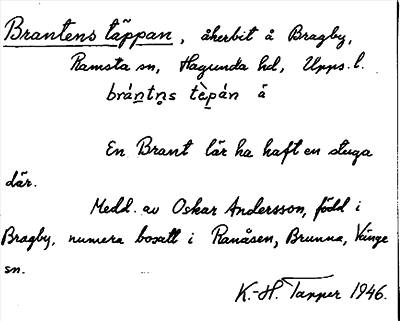 Brantens täppan, åkerbit å Bragby,
Ramsta sn, Hagunda hd, Upps. l.
brántn̥s tὲpán å
En Brant lär ha haft en stuga
där.
Medd. av Oskar Andersson, född i
Bragby, numera bosatt i Ranåsen, Brunna, Vänge
sn.
K.-H. Tanner 1946.